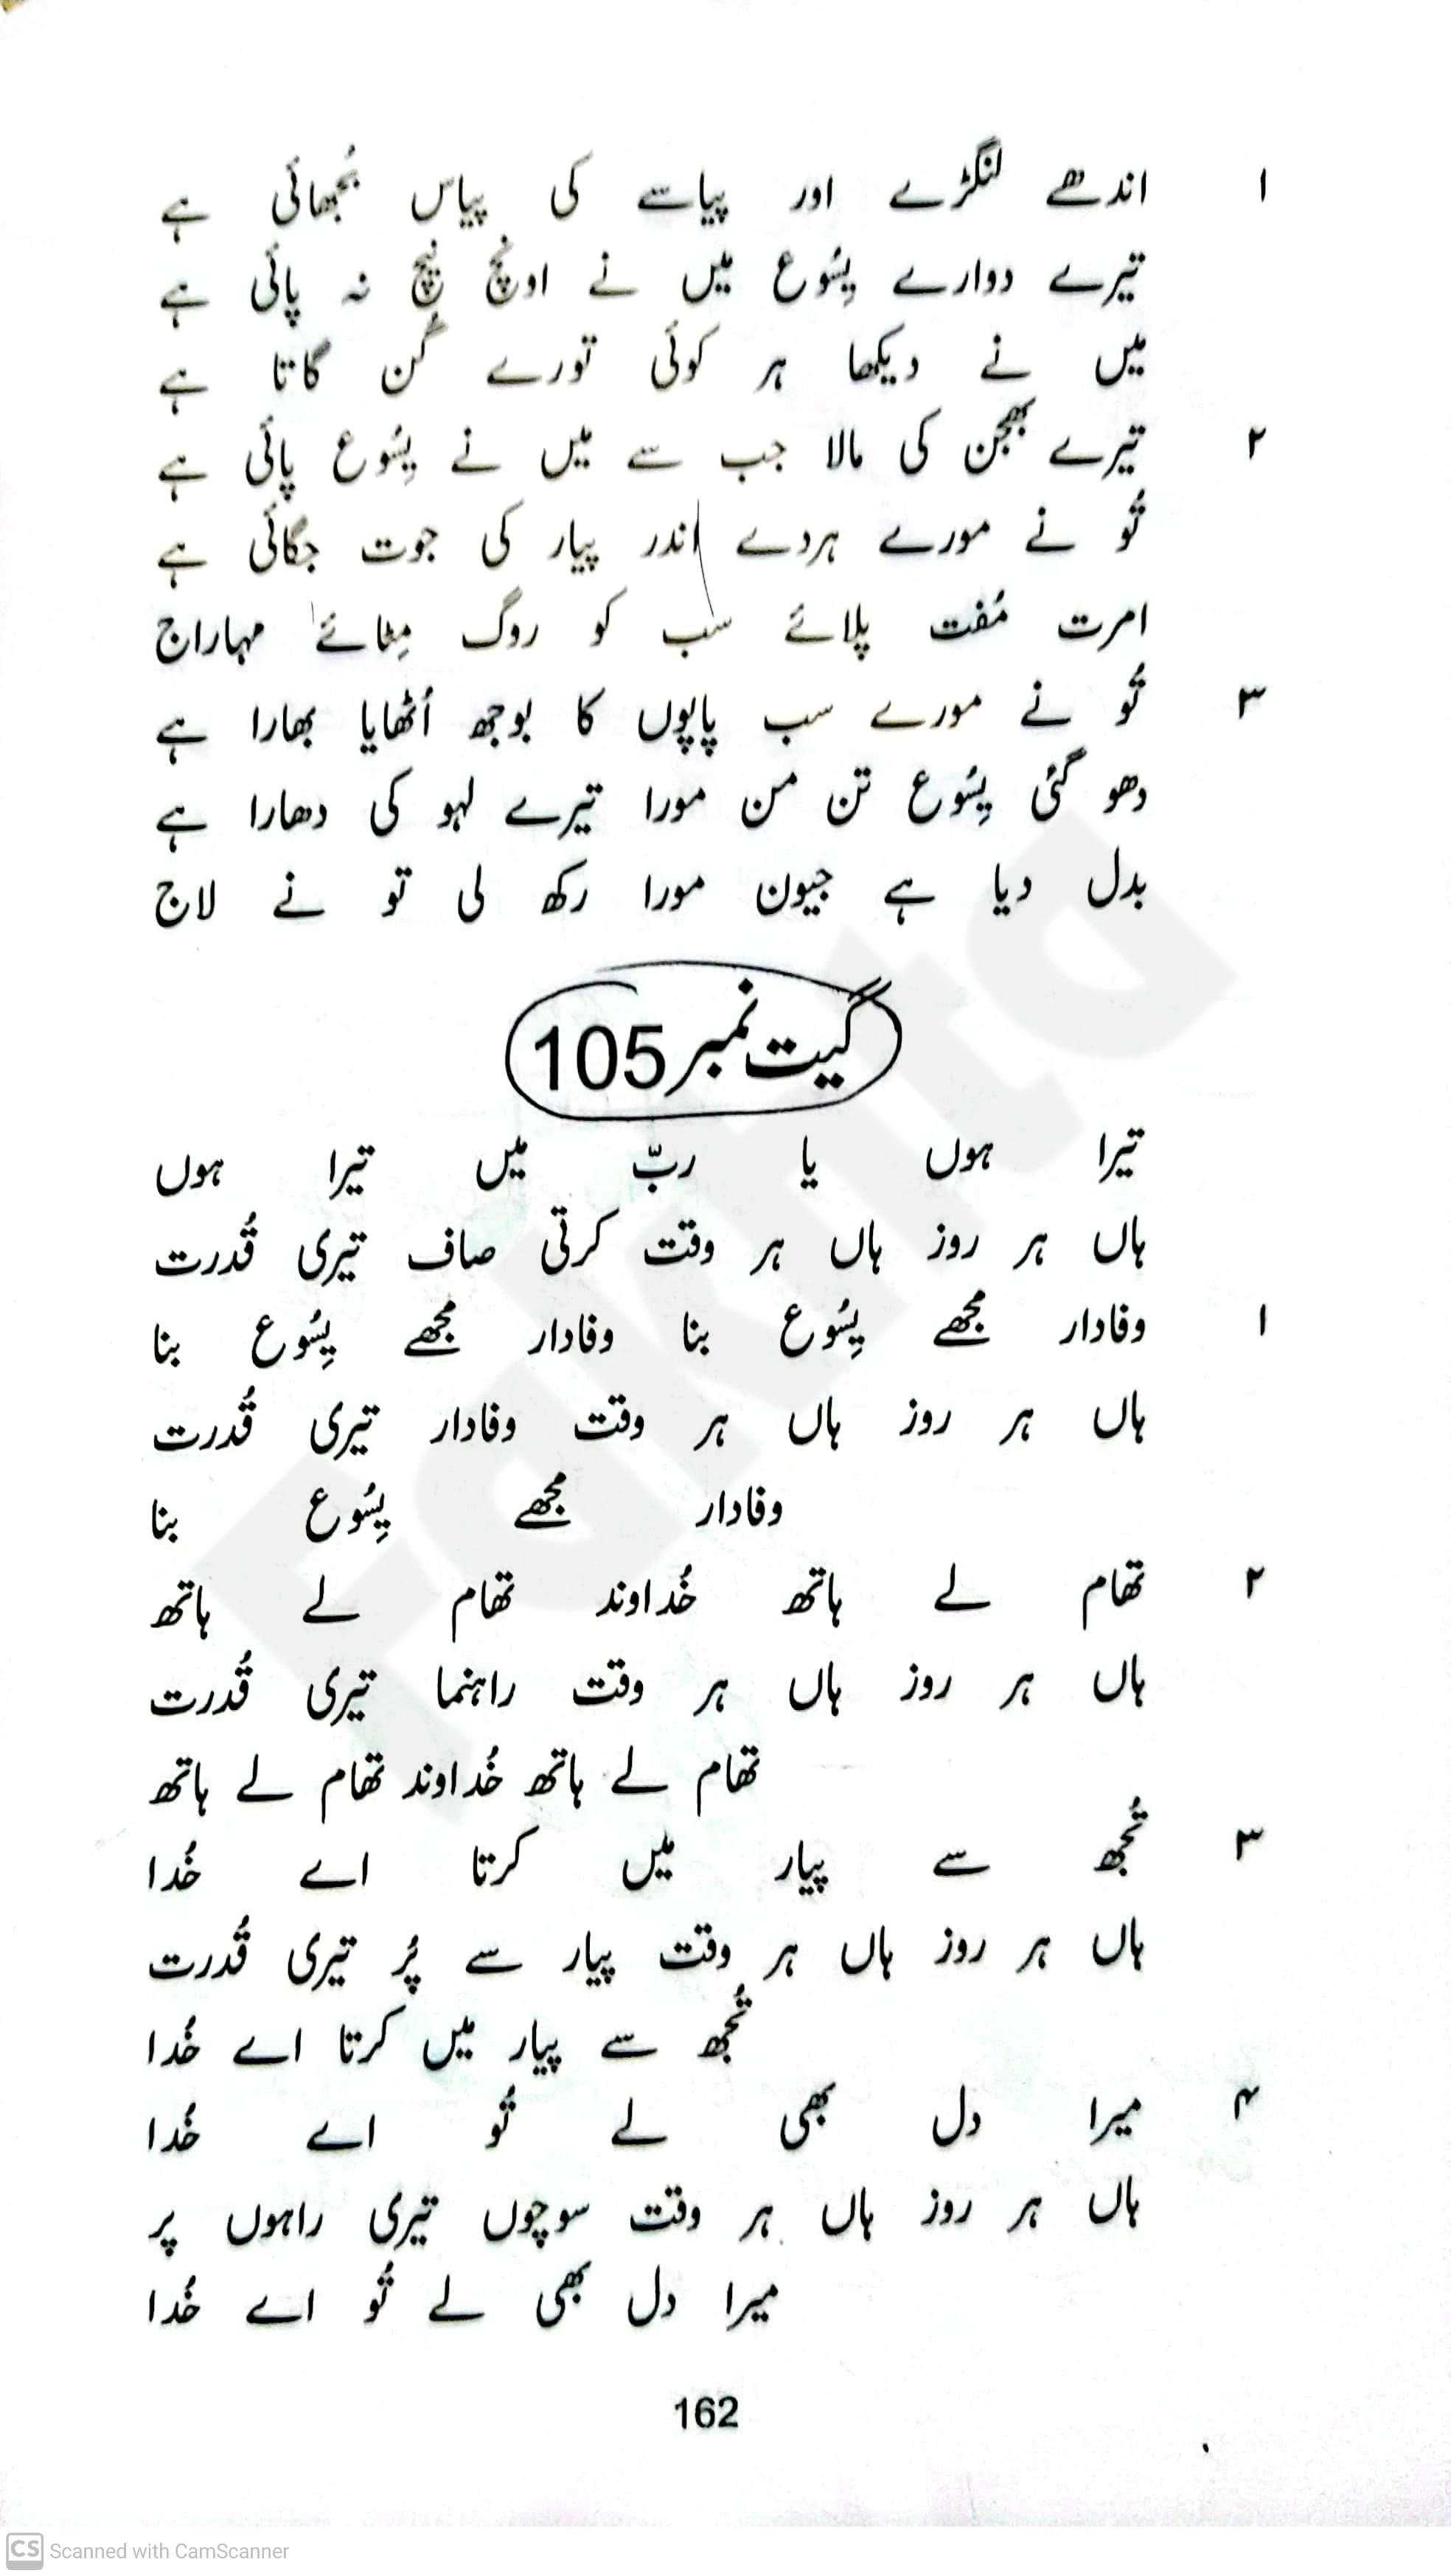 ۱ اندھے لنگڑے اور پیاسے کی پیاس بُجھائی ہے
تیرے دوارے یِسُوع میں نے اونچ نیچ نہ پائی ہے
میں نے دیکھا ہر کوئی تورے گُن گاتا ہے
۲ تیرے بھجن کی مالا جب سے میں نے یِسُوع پائی ہے
تُو نے مورے ہردے اندر پیار کی جوت جگائی ہے
امرت مُفت پلائے سب کو روگ مِٹائے مہاراج
۳ تُو نے مورے سب پاپوں کا بوجھ اُٹھایا بھارا ہے
دھو گئی یِسُوع تن من مورا تیرے لہو کی دھارا ہے
بدل دیا ہے جیون مورا رکھ لی تو نے لاج
گیت نمبر 105
تیرا ہوں یا ربّ میں تیرا ہوں
ہاں ہر روز ہاں ہر وقت کرتی صاف تیری قُدرت
۱ وفادار مجھے یِسُوع بنا وفادار مجھے یِسُوع بنا
ہاں ہر روز ہاں ہر وقت وفادار تیری قُدرت
وفادار مجھے یِسُوع بنا
۲ تھام لے ہاتھ خُداوند تھام لے ہاتھ
ہاں ہر روز ہاں ہر وقت راہنما تیری قُدرت
تھام لے ہاتھ خُداوند تھام لے ہاتھ
۳ تُجھ سے پیار میں کرتا اے خُدا
ہاں ہر روز ہاں ہر وقت پیار سے پُر تیری قُدرت
تُجھ سے پیار میں کرتا اے خُدا
۴ میرا دل بھی لے تُو اے خُدا
ہاں ہر روز ہاں ہر وقت سوچوں تیری راہوں پر
میرا دل بھی لے تُو اے خُدا
162
CS Scanned with CamScanner